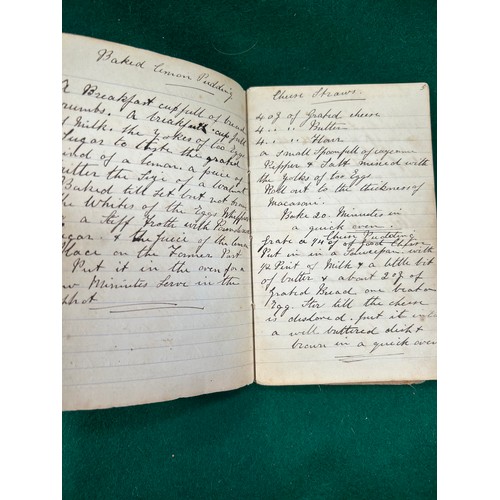 Baked Lemon Pudding
A Breakfast cupfull of bread
crumbs. A breakfast cupfull
Milk. the yokes of too Eggs
Sugar to taste the grated
rind of a lemon a piece of
butter the Size of a walnut
Baked till Set but not
the Whites of the Eggs Whipped
a Stiff froth with
Sugar. & the juice of the lemon
Place on the Former Part
Put it in the oven for a
Minutes Serve in the
5
Cheese Straws.
4 oz of Grated cheese
4 " " Butter
4 " " Flour
a Small Spoonfull of cayenne
Pepper & Salt mixed with
the yolks of too Eggs
Roll out to the thickness of
Macaroni.
Bake 20. Minutes in
a quick oven.
Cheese
Grate a 1/4 of good
Put in in a Saucepan with
1/2 Pint of Milk & a little bit
of butter & about 2 oz of
Grated Bread one beaten
Egg. Stir till the cheese
is disolved. put it
a well buttered dish &
brown in a quick oven